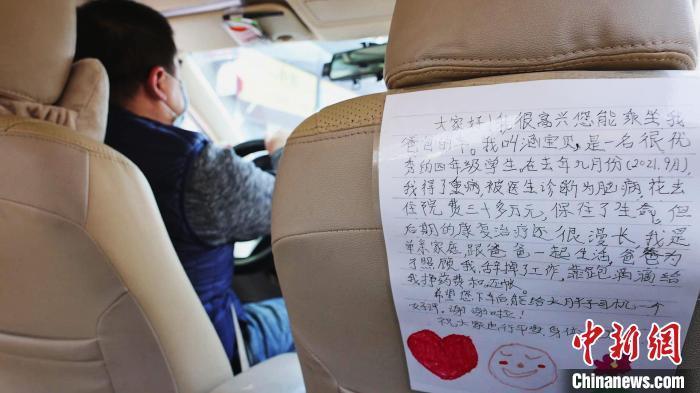 大家好！我很高兴您能乘坐我
爸爸的车。我叫涵宝贝，是一名很优
秀的四年级学生，在去年九月份(2021.9月)，
我得了重病被医生诊断为脑病，花去
住院费三十多万元，保住了生命，但
后期的康复治疗还很漫长，我是
单亲家庭，跟爸爸一起生活，爸爸为
了照顾我，辞掉了工作，靠跑滴滴给
我挣药费和还帐。
希望您下车后能给大胖子司机一个
好评，谢谢啦！
祝大家出行平安，身体
中新网
Chinanews.com